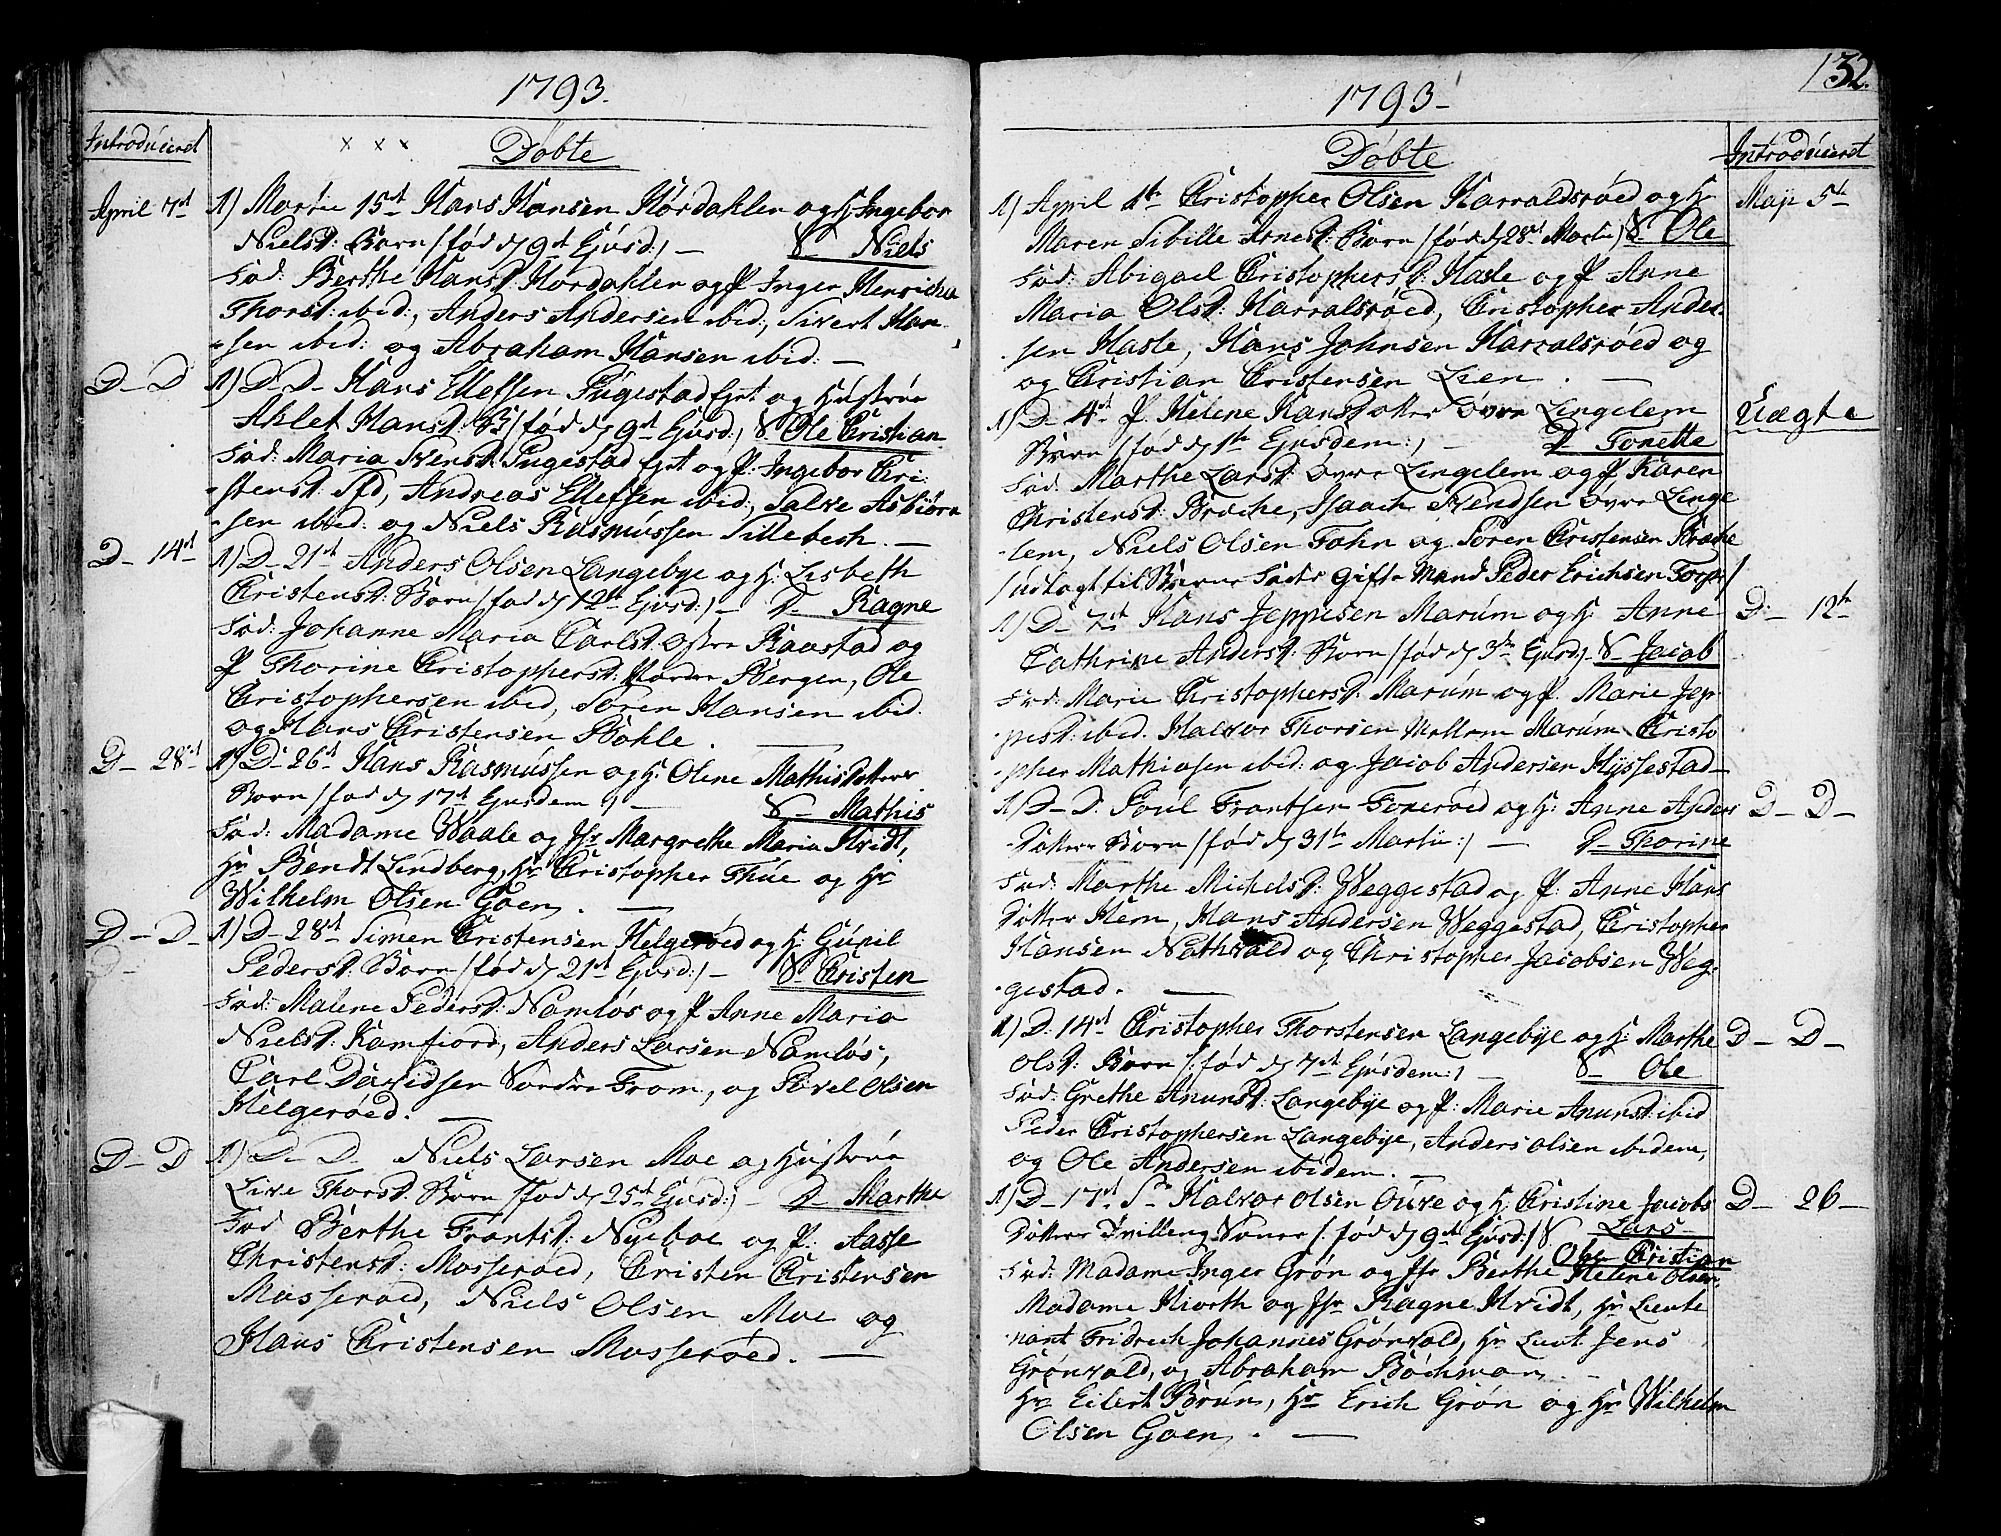 1793.
Introduceret
x x x Döbte
April 7de 1) Martii 15de Hans Hansen Hördahlen og H: Ingebor
Nielsd: Barn /:fød d 9de Ejusd:/ - S- Niels
Fad: Berthe Hansd: Hordahlen og P: Inger Henricha
Thorsd: ibid:, Anders Andersen ibid:, Sivert Han-
-sen ibid: og Abraham Hansen ibid: -
D- D 1) D- D- Hans Ellefsen Fugestad Ejet og Hustrue
Aslet Hansd: B /fød d 9de Ejusd:/ S- Ole Cristian
Fad: Maria Svensd: Fugestad Ejet og P: Ingebor Cri-
-stensd: Sfd, Andreas Ellefsen ibid:, Salve Asbiörn
-sen ibid: og Niels Rasmussen Sillebech. -
D- 14de 1) D- 21de Anders Olsen Langebye og H: Lisbeth
Cristensd: Börn /fød d 12te Ejusd:/ - D- Ragne
Fad: Johanne Maria Carlsd: Østre Raastad og
P: Thorine Christophersd: Nordre Bergen, Ole
Christophersen ibid, Sören Hansen ibid.
og Hans Christensen Böhle. -
D- 28de 1) D- 26de Hans Rasmussen og H: Olene Mathisdatter
Born /fød d 17de Ejusdem:/ - S- Mathis
Fad: Madame Waale og Jfr Margrethe Maria Hvidt,
Hr Bendt Lindberg, Hr Christopher Thue og Hr
Wilhelm Olsen Goen. -
D- D- 1) D- 28de Simen Cristensen Helgeröed og H: Gunil
D-
Pedersd: Born /fød d 21de Ejusd:/ - S- Cristen
Fad: Malene Pedersd: Namlös og P: Anne Maria
Nielsd: Kamfiord, Anders Larsen Namlös,
Carl Davidsen Nordre Fram, og Povel Olsen
Helgeröed. -
D- D 1) D- D- Niels Larsen Moe og Hustrue
Live Thorsd: Born /fød d 25de Ejusd:/ - D- Marthe
Fad Berthe Frantsd: Nyeboe og P: Aasse
Christensd: Masseröed, Cristen Christensen
Masseröed, Niels Olsen Moe og
Hans Christensen Masseröed. -
132.
1793-
Döbte
Introduceret
1) April 1te Christopher Olsen Harraldsröed og H: Maji 5te
Maren Sibille Arnesd: Born /fød d 28de Martii/ S- Ole
Fad: Abigael Christophersd: Hasle og P: Anne
Maria Olsd: Harralsröed, Christopher Ander-
-sen Hasle, Hans Johnsen Harralsröed og
og Christian Christensen Lien. -
1) D- 4de P: Helene Hansdatter Øvre Lingelem Uægte
Born /fød d 1te Ejusdem:/ - D- Tonette
Fad: Marthe Larsd: Øvre Lingelem og P: Karen
Christensd: Bröche, Isaach Svendsen Øvre Linge
-lem, Niels Olsen Fohn og Sören Christensen Bröche
/udlagt til Barne Fader Gifte Mand Peder Erichsen Torp/
1) D- 7de Hans Jeppesen Marum og H: Anne D- 12te
Cathrine Andersd: Born /fød d 3de Ejusd:/ S- Jacob
Fad: Marie Christophersd: Marum og P: Marie Jep-
-pesd: ibid. Halvor Thorsen Mellem Marum, Christo
-pher Mathiasen ibid: og Jacob Andersen Hyssestad-
1) D- D: Poul Frantsen Foxeröed og H: Anne Anders D- D-
Datter Born /fød d 31te Martii:/ - D- Thorine
Fad: Marthe Michelsd: Weggestad og P: Anne Hans
Datter Hem, Hans Andersen Weggestad, Christopher
Hansen Nathvald og Christopher Jacobsen Weg-
-gestad. -
1) D: 14de Christopher Thorstensen Langebye og H: Marthe D- D-
Olsd: Born /: fød d 7de Ejusdem:/ - S- Ole
Fad: Grethe Anunsd: Langebye og P: Marie Anunsd: ibid
Peder Christophersen Langebye, Anders Olsen ibidem,
og Ole Andersen ibidem. -
1) D- 17de Sr Halvor Olsen Ouve og H: Cristine Jacobs D- 26-
Datter Tvilling Sønner /: fød d 9de Ejusd:/ S Lars-
Ole Christian
Fad: Madame Inger Grön og Jfr Berthe Helene Olsen,
Madame Hiorth og Jfr Ragne Hvidt, Hr Lieute
-nant Fridrech Johannes Grönvold, Hr Lieut Jens
Grönvold, og Abraham Böchman. -
Hr Eilert Brun, Hr Erich Grön og Hr Wilhelm
Olsen Goen. -